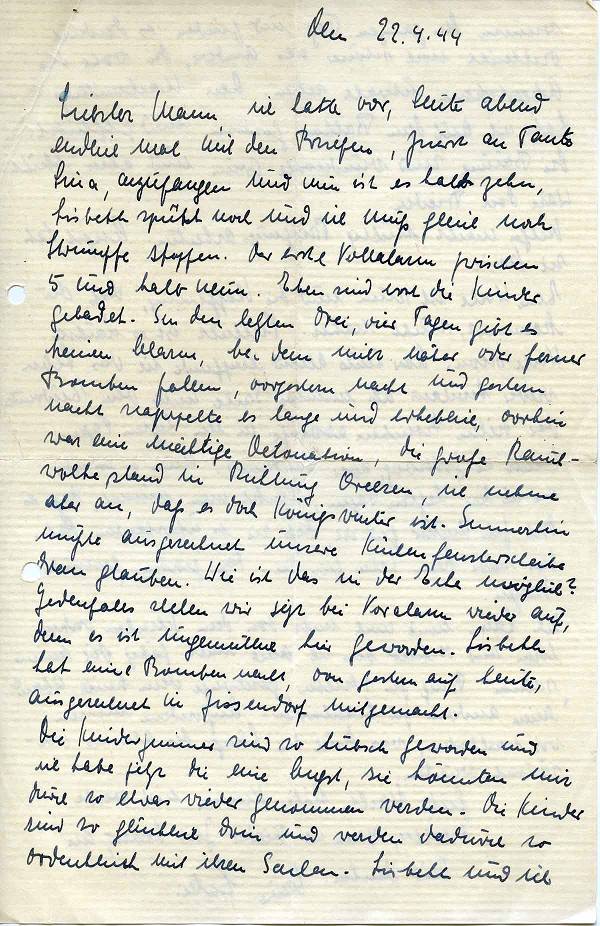 Den 22.4.44
Liebster Mann, ich hatte vor, heute abend
endlich mal mit den Briefen, zuerst an Tante
Lina, anzufangen und nun ist es halb zehn,
Lisbeth spühlt noch und ich muß gleich noch
Strümpfe stopfen. Der erste Vollalarm zwischen
5 und halb neun. Eben sind erst die Kinder
gebadet. In den letzten drei, vier Tagen gibt es
keinen Alarm, bei dem nicht näher oder ferner
Bomben fallen, vorgestern nacht und gestern
nacht rappelte es lange und erheblich, vorhin
war eine mächtige Detonation, die große Rauch-
wolke stand in Richtung, ich nehme
aber an, daß es doch Königswinter ist. Immerhin
mußte ausgerechnet unsere Küchenfensterscheibe
dran glauben. Wie ist das in der Ecke möglich?
Jedenfalls stehen wir jetzt bei Voralarm wieder auf,
denn es ist ungemütlich hier geworden. Lisbeth
hat eine Bombennacht, von gestern auf heute,
ausgerechnet in Zissendorf mitgemacht.
Die Kinderzimmer sind so hübsch geworden und
ich habe jetzt die eine Angst, sie könnten mir
durch so etwas wieder genommen werden. Die Kinder
sind so glücklich drin und werden dadurch so
ordentlich mit ihren Sachen. Lisbeth und ich